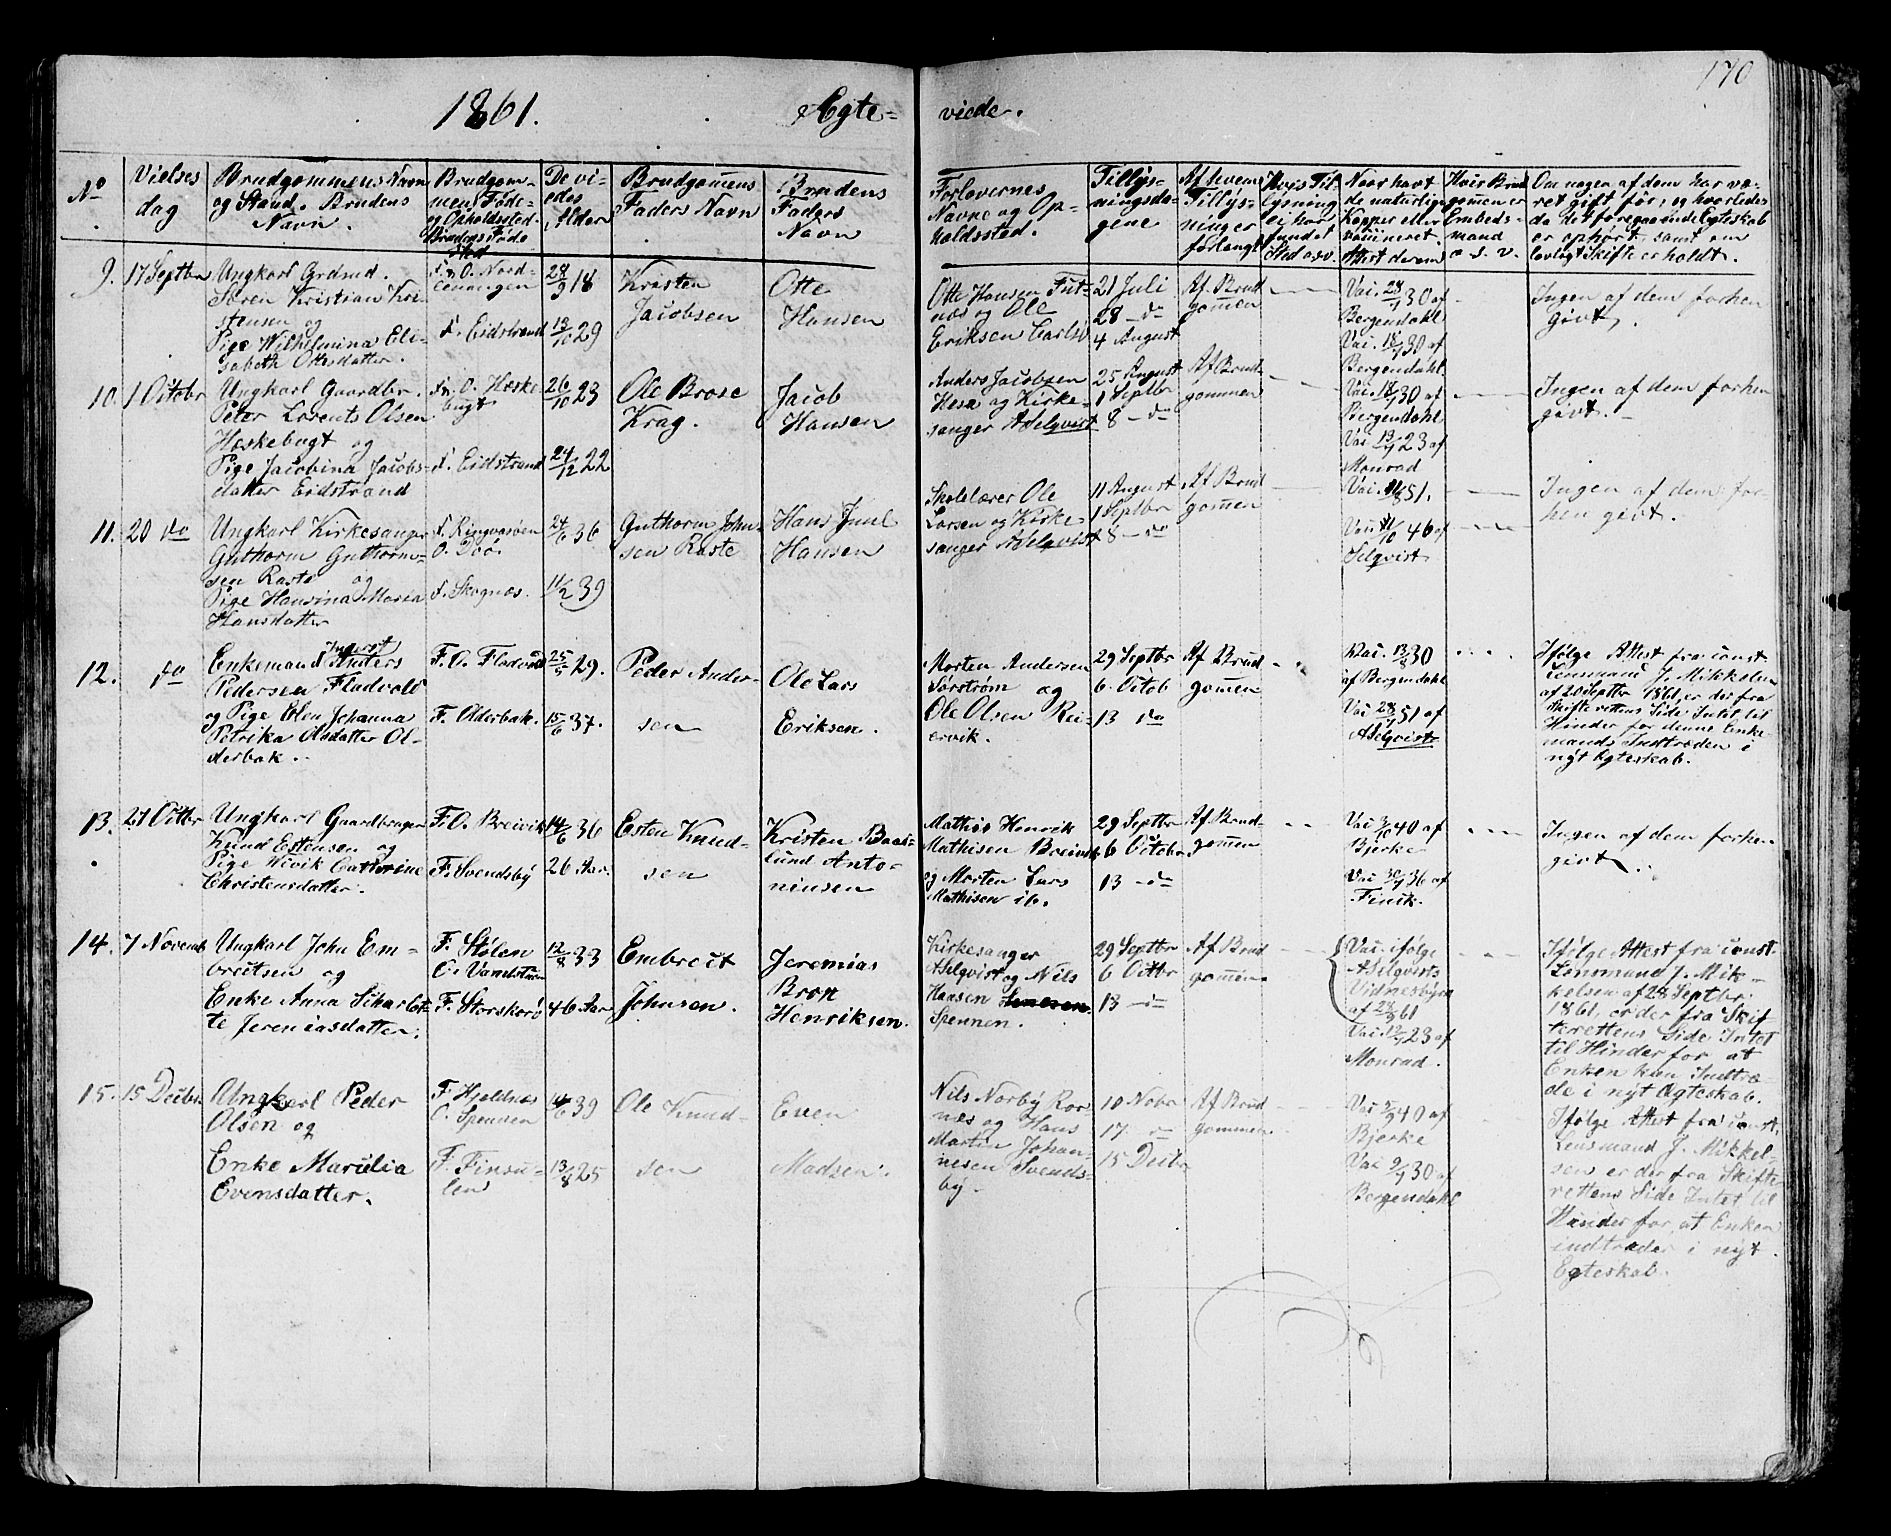 170
1861. Ægte= viede.
No
Vielses dag
Brudgommens Navn og Stand. Brudens Navn.
Brudgommens Føde- og Opholdssted. Brudens Føde sted
De viedes Alder
Brudgomens Faders Navn
Brudens Faders Navn
Forlovernes Navne og Opholdssted.
Tillysningsdagene
Af hvem Tillysninger forlangt
Hvis Tillysning ei har fundet Sted o.s.v.
Naar havt de naturlige Kopper eller vaccineret. Attest derom
Hvis Brudgomen er Embedsmand o. s. v.
Om nogen af dem har været gift før, og hvorledes da det foregaaende Ægteskab er ophørt, samt om lovligt Skifte er holdt.
9. 17 Septbr
Ungkarl Grdmd.
Søren Kristian Kri-
stensen og
Pige Wilhelmina Eli-
sabeth Ottesdatter.
F. O. Nord-
lenangen
F. Eidstrand
28/9 18
13/10 29
Kristen
Jacobsen
Otte
Hansen
Otte Hansen Fut-
næs og Ole
Eriksen Carlso
21 Juli
28 - do
4 August
Af Brud
gomen
Vai. 28/7 30 af
Bergendahl
Vai. 18/7 30 af
Bergendahl
Ingen af dem forhen
givt.
10. 1 Octobr
Ungkarl Gaardbr.
Peter Lorents Olsen
Hæskebugt og
Pige Jacobina Jacobs-
datter Eidstrand
F. O. Hæske
bugt
F. Eidstrand
26/10 23
24/12 22
Ole Brose
Krag.
Jacob
Hansen
Anders Jacobsen
Hesa og Kirke-
sanger Aselqvist
25 August
1 Septbr
8 - do
Af Brud
gommen
Vai 18/7 30 af
Bergendahl
Vai 13/7 23 af
Monrad
Ingen af dem forhen
givt.
11. 20 do
Ungkarl Kirkesanger
Guthorm Guthorm-
sen Rasto og
Pige Hansina Maria
Hansdatter
F. Ringvasøen
F. Skognæs.
24/6 36
11/2 39
Guthorm John-
sen Raste
Hans Juul
Hansen
Skolelærer Ole
Larsen og Kirke
sanger Aselqvist
11 August
1 Septbr
8 - do
Af Brud
gomen
46 af
Selqvist
Ingen af dem for-
hen givt.
12. do
Enkemand Ingerst
Anders
Pedersen Fladvold
og Pige Elen Johanna
Petrika Olsdatter Ol-
derbak.
F. O. Fladvold
F. Olderbak.
25/5 29.
15/6 37.
Peder Ander-
sen
Ole Lars
Eriksen.
Morten Andersen
Sørstrøm og
Ole Olsen Rei-
ervik.
29 Septbr
6. Octob
13 do
Af Brud
gomen
Vai. 13/8 30
af Bergendahl
Vai 28/7 51 af
Aselqvist
Ifølge Attest fra const.
Lensmand J. Mikkelsen
af 20 Septbr 1861, er der fra
Skifterettens Side Intet til
Hinder for denne Enke
mands Indtræden i
nyt Ægteskab.
13. 27 Octbr
Ungkarl Gaardbruger
Knud Estensen og
Pige Hivik Cathrine
Christensdatter.
F. O. Breivik
F. Svendsby
14/6 36
26 Aar
Esten Knud-
sen
Kristen Baas-
lund Anto-
niusen
Mathis Henrik
Mathisen Breivik
og Morten Lars
Mathisen ib.
29 Septbr
6 October
13 - do
Af Brud-
gomen
Vai 3/10 40 af
Bjerke
Vai 30/7 36 af
Finik.
Ingen af dem forhen
givt.
14. 7 Novemb
Ungkarl John Em-
bretsen og
Enke Anna Scharlot-
te Jeremiasdatter.
F. Stølen
F. Storskorø
12/8 33
46 Aar
Embreit
Johnsen.
Jeremias
Bron
Henriksen.
Kirkesanger
Aselqvist og Nils
Hansen
Spennen.
29 Septbr
6 Octbr
13 - do
Af Brud
gomen
Vai. ifølge
Aselqvists
Vidnesbyrd
af 23/9 61
Vai. 12/7 23 af
Monrad.
Ifølge Attest fra const.
Lensmand J. Mik-
kelsen af 28 Septbr
1861, er der fra Skif
terettens Side Intet
til Hinder for at
Enken kan Indtræ-
de i nyt Ægteskab.
15. 15 Decbr.
Ungkarl Peder
Olsen og
Enke Marselia
Evensdatter.
F. Hjeldnæs
O. Spennen
F. Finsæ-
len
14/6 39
13/8 25
Ole Knud-
sen
Even
Madsen.
Nils Norby Ror
næs og Hans
Martin Johan-
nesen Svends-
by.
10 Nobr
17. do
15 Decbr
Af Brud
gommen
Vai 5/9 40 af
Bjerke
Vai 9/7 30 af
Bergendahl
Ifølge Attest fra const.
Lensmand J. Mikkel-
sen er der fra Skifte
rettens Side Intet til
Hinder for, at Enken
indtræder i nyt
Egteskab.